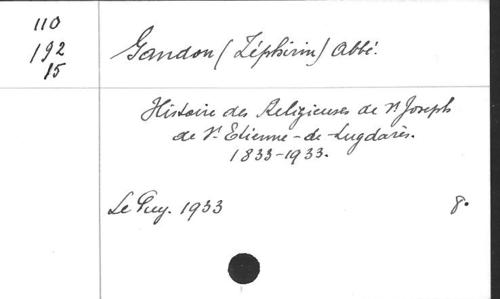 110
192
15
Gandon (Zéphirin) Abbé.
Histoire des Religieuses de St Joseph
de St Etienne-de-Lugdarès.
1833-1933.
Le Puy. 1933 8°